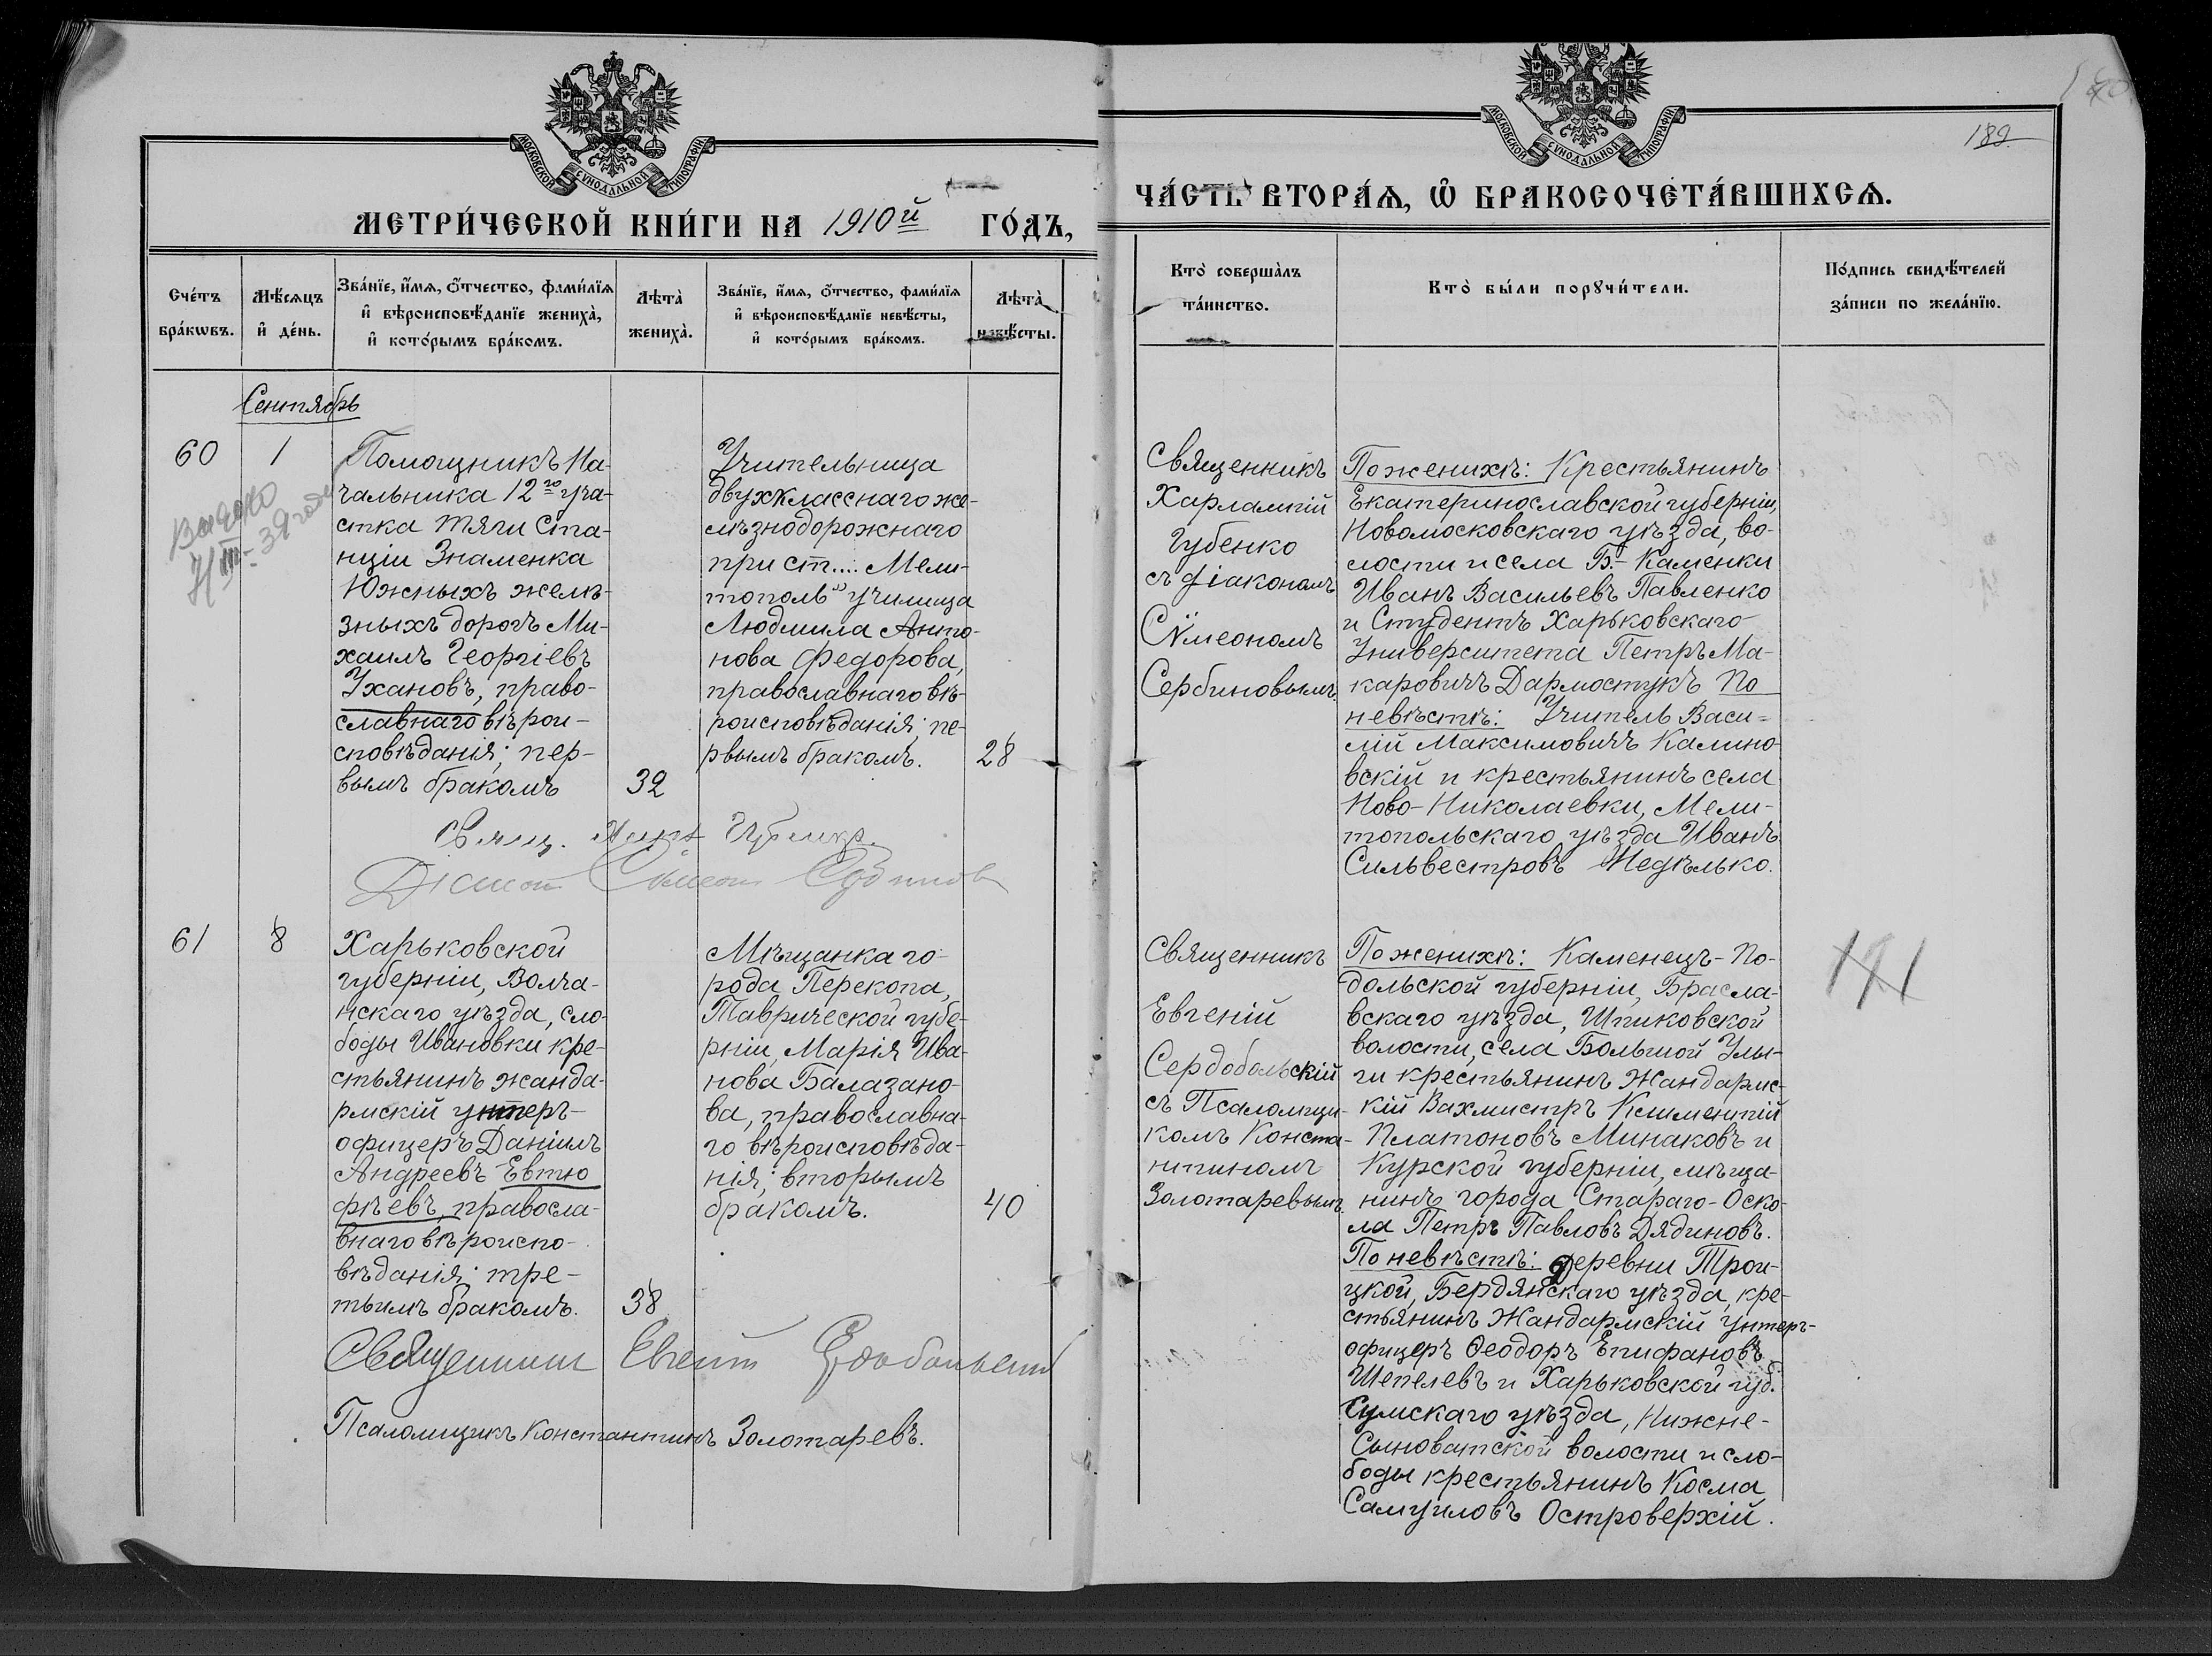 МОСКОВСКОЙ СѴНОДАЛЬНОЙ ТИПОГРАФІИ
МЕТРИ́ЧЕСКОЙ КНИ́ГИ НА 1910й ГО́ДЪ,
Сче́тъ бра́кѡвъ.
Мѣ́сѧцъ и҆ де́нь.
Зва́нїе, и҆́мѧ, ѻ҆́тчество, фами́лїѧ
и҆ вѣроисповѣ́данїе жениха̀,
и҆ кото́рымъ бра́комъ.
Лѣта̀ жениха̀.
Зва́нїе, и҆́мѧ, ѻ҆́тчество, фами́лїѧ
и҆ вѣроисповѣ́данїе невѣ́сты,
и҆ кото́рымъ бра́комъ.
Лѣта̀ невѣ́сты.
Сентябрь
60
1
Помощникъ На-
чальника 12го уча-
стка тяги Ста-
нціи Знаменка
Южныхъ желѣ-
зныхъ дорогъ Ми-
хаилъ Георгіевъ
Ухановъ, право-
славнаго вѣрои-
сповѣданія; пер-
вымъ бракомъ
32
Учительница
двухкласснаго же-
лѣзнодорожнаго
при ст.... Мели-
тополь" училища
Людмила Анто-
нова Федорова,
православнаго вѣ-
роисповѣданія; пе-
рвымъ бракомъ.
28
Свящ. Губенко.
Діаконъ Сѵмеонъ Сербиновъ
61
8
Харьковской
губерніи, Волча-
нскаго уѣзда, сло-
боды Ивановки кре-
стьянинъ жанда-
рмскій унтеръ-
офицеръ Даніилъ
Андреевъ Евтю
фѣевъ, правосла-
внаго вѣроиспо-
вѣданія; тре-
тьимъ бракомъ.
38
Мѣщанка го-
рода Перекопа,
Таврической губе-
рніи, Марія Ива-
нова Балазано-
ва, православна-
го вѣроисповѣда-
нія; вторымъ
бракомъ.
40
Священникъ Евгеній Сердобольскій
Псаломщикъ Константинъ Золотаревъ.
МОСКОВСКОЙ СѴНОДАЛЬНОЙ ТИПОГРАФІИ
182
ЧА́СТЬ ВТОРА́Ѧ, Ѽ БРАКОСОЧЕТА́ВШИХСѦ.
Кто̀ соверша̀лъ
та́инство.
Кто̀ бы́ли порꙋчи́тели.
По́дпись свидѣ́телей
за́писи по жела́нїю.
Священникъ
Харлампій
Губенко
съ діакономъ
Сѵмеономъ
Сербиновымъ.
По женихѣ: Крестьянинъ
Екатеринославской губерніи,
Новомосковскаго уѣзда, во-
лости и села Б.-Каменки
Иванъ Васильевъ Павленко
и Студентъ Харьковскаго
Университета Петръ Ма-
каровичъ Дармостукъ По
невѣстѣ: Учитель Васи-
лій Максимовичъ Калино-
вскій и крестьянинъ села
Ново-Николаевки, Мели-
топольскаго уѣзда Иванъ
Сильвестровъ Недѣлько.
Священникъ
Евгеній
Сердобольскій
съ Псаломщи-
комъ Конста-
нтиномъ
Золотаревымъ.
По женихѣ: Каменецъ-По-
дольской губерніи, Брасла-
вскаго уѣзда, Шпиковской
волости, села Большой Улы-
ги крестьянинъ Жандармс-
кій Вахмистръ Климентій
Платоновъ Минаковъ и
Курской губерніи, мѣща-
нинъ города Стараго-Оско-
ла Петръ Павловъ Дядиновъ.
По невѣстѣ: деревни Трои-
цкой, Бердянскаго уѣзда, кре-
стьянинъ Жандармскій унтеръ-
офицеръ Ѳеодоръ Епифановъ
Шепелевъ и Харьковской губ.
Сумскаго уѣзда, Нижне-
Сыноватской волости и сло-
боды крестьянинъ Косма
Самуиловъ Островерхій.